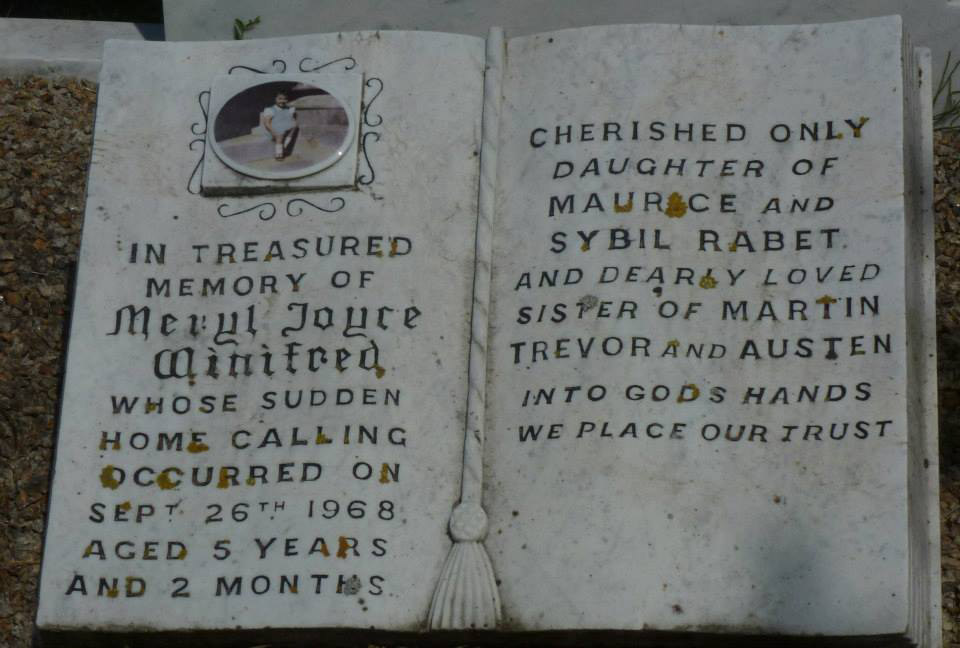 IN TREASURED
MEMORY OF
Meryl Joyce
Winifred
WHOSE SUDDEN
HOME CALLING
OCCURRED ON
SEPT. 26TH 1968
AGED 5 YEARS
AND 2 MONTHS
CHERISHED ONLY
DAUGHTER OF
MAURICE AND
SYBIL RABET.
AND DEARLY LOVED
SISTER OF MARTIN
TREVOR AND AUSTEN
INTO GODS HANDS
WE PLACE OUR TRUST